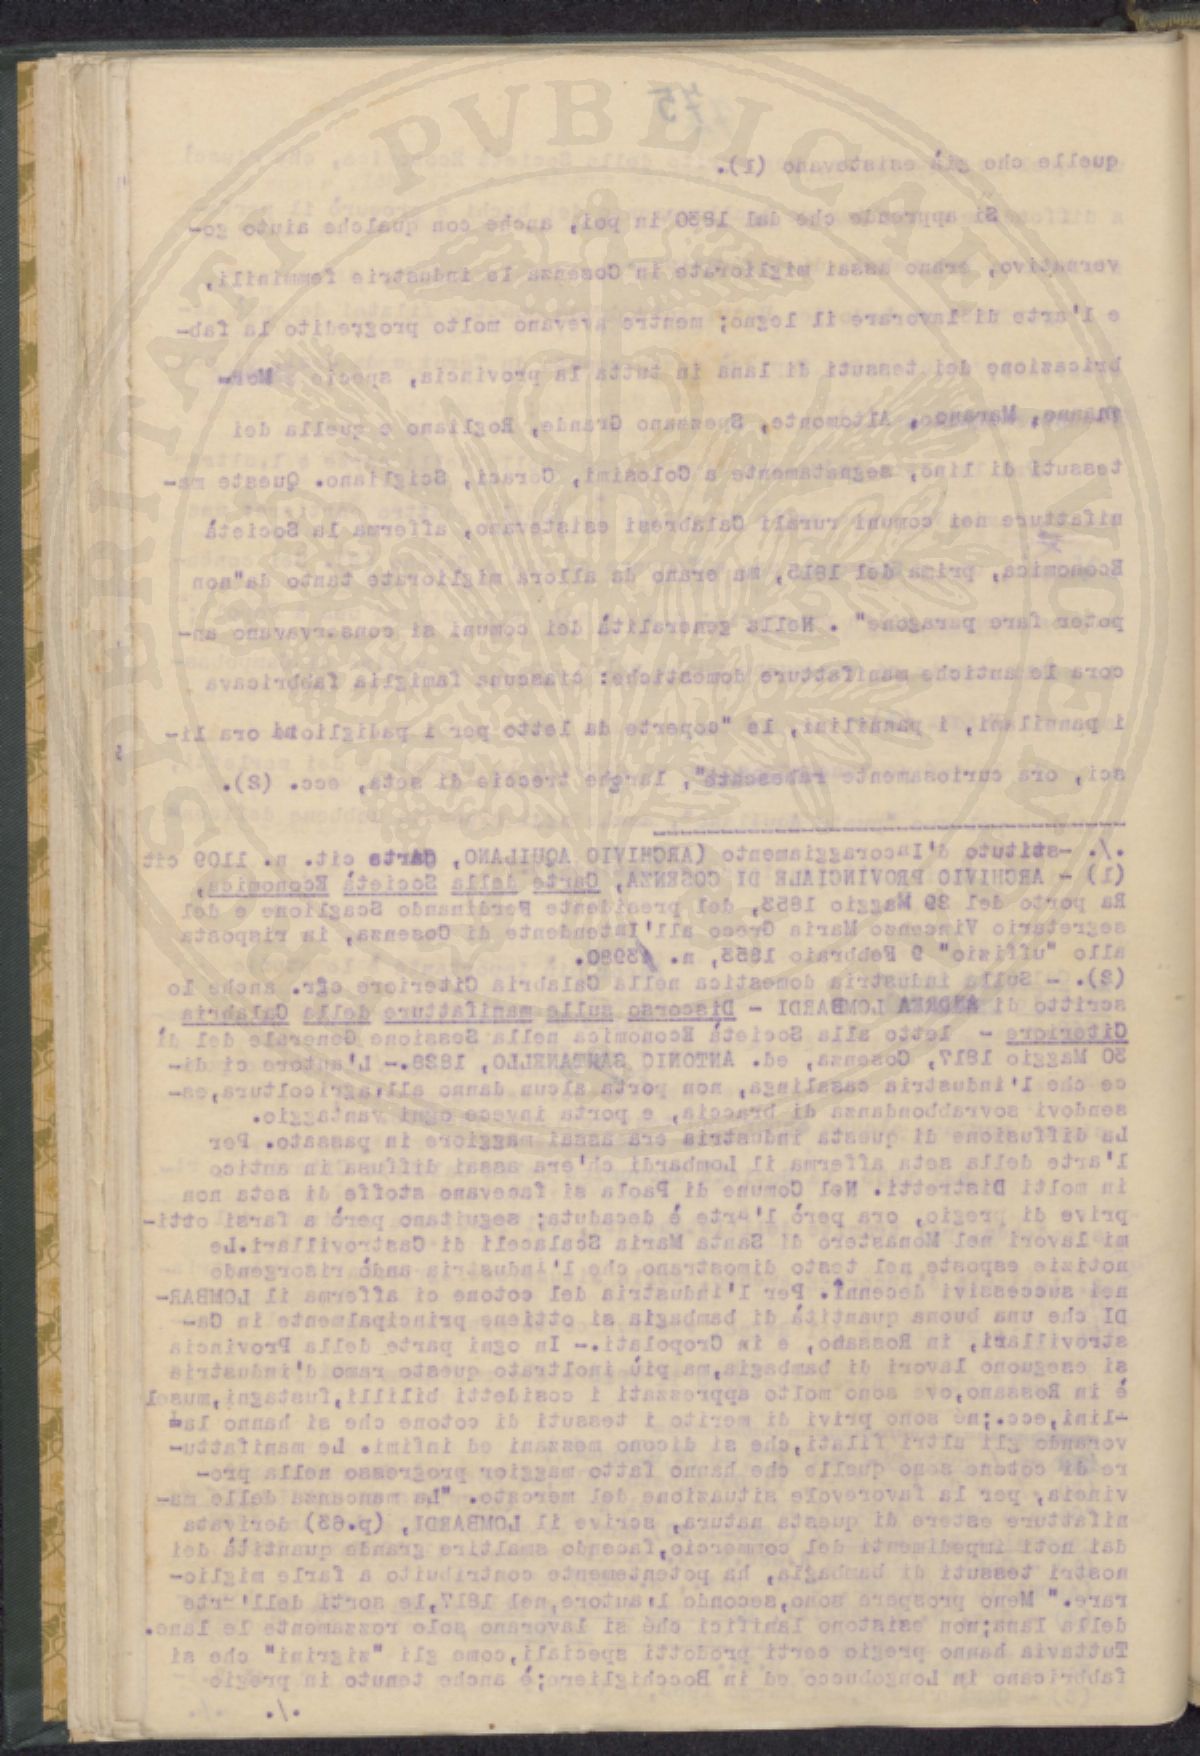 75
quelle che già esistevano (1).
Si apprende che dal 1830 in poi, anche con qualche aiuto go-
vernativo, erano assai migliorate in Cosenza le industrie femminili,
e l'arte di lavorare il legno; mentre avevano molto progredito la fab-
bricazione dei tessuti di lana in tutta la provincia, specie a Mor-
manno, Morano, Altomonte, Spezzano Grande, Rogliano e quella dei
tessuti di lino, segnatamente a Colosimi, Coraci, Scigliano. Queste ma-
nifatture nei comuni rurali Calabresi esistevano, afferma la Società
Economica, prima del 1815, ma erano da allora migliorate tanto da"non
poter fare paragone" . Nella generalità dei comuni si conservavano an-
cora le antiche manifatture domestiche: ciascuna famiglia fabbricava
i pannilani, i pannilini, le "coperte da letto per i padiglioni ora li-
sci, ora curiosamente rabescate", larghe treccie di seta, ecc. (2).
./. -stituto d'Incoraggiamento (ARCHIVIO AQUILANO, Carte cit. n. 1109 cit
(1) - ARCHIVIO PROVINCIALE DI COSENZA, Carte della Società Economica,
Ra porto del 29 Maggio 1853, del presidente Ferdinando Scaglione e del
segretario Vincenzo Maria Greco all'Intendente di Cosenza, in risposta
allo "uffizio" 9 Febbraio 1853, n. 43980.
(2). - Sulla industria domestica nella Calabria Citeriore cfr. anche lo
scritto di ANDREA LOMBARDI - Discorso sulle manifatture della Calabria
Citeriore - letto alla Società Economica nella Sessione Generale del dì
30 Maggio 1817, Cosenza, ed. ANTONIO SANTANELLO, 1838.- L'autore ci di-
ce che l'industria casalinga, non porta alcun danno all'agricoltura,es-
sendovi sovrabbondanza di braccia, e porta invece ogni vantaggio.
La diffusione di questa industria era assai maggiore in passato. Per
l'arte della seta afferma il Lombardi ch'era assai diffusa in antico
in molti Distretti. Nel Comune di Paola si facevano stoffe di seta non
prive di pregio, ora però l'arte è decaduta; seguitano però a farsi otti-
mi lavori nel Monastero di Santa Maria Scalaceli di Castrovillari.Le
notizie esposte nel testo dimostrano che l'industria andò risorgendo
nei successivi decenni. Per l'industria del cotone ci afferma il LOMBAR-
DI che una buona quantità di bambagia si ottiene principalmente in Ca-
strovillari, in Rossano, e in Cropolati.- In ogni parte della Provincia
si eseguono lavori di bambagia,ma più inoltrato questo ramo d'industria
è in Rossano,ove sono molto apprezzati i cosidetti bililli,fustagni,musol
-lini,ecc.;nè sono privi di merito i tessuti di cotone che si hanno la=
vorando gli altri filati,che si dicono mezzani ed infimi. Le manifattu-
re di cotone sono quelle che hanno fatto maggior progresso nella pro-
vincia, per la favorevole situazione del mercato. "La mancanza delle ma-
nifatture estere di questa natura, scrive il LOMBARDI, (p.63) derivata
dai noti impedimenti del commercio,facendo smaltire grande quantità dei
nostri tessuti di bambagia, ha potentemente contribuito a farle miglio-
rare." Meno prospere sono,secondo l'autore,nel 1817,le sorti dell'arte
della lana;non esistono lanifici chè si lavorano solo rozzamente le lane.
Tuttavia hanno pregio certi prodotti speciali,come gli "zigrini" che si
fabbricano in Longobucco ed in Bocchigliero;è anche tenuto in pregio
./.